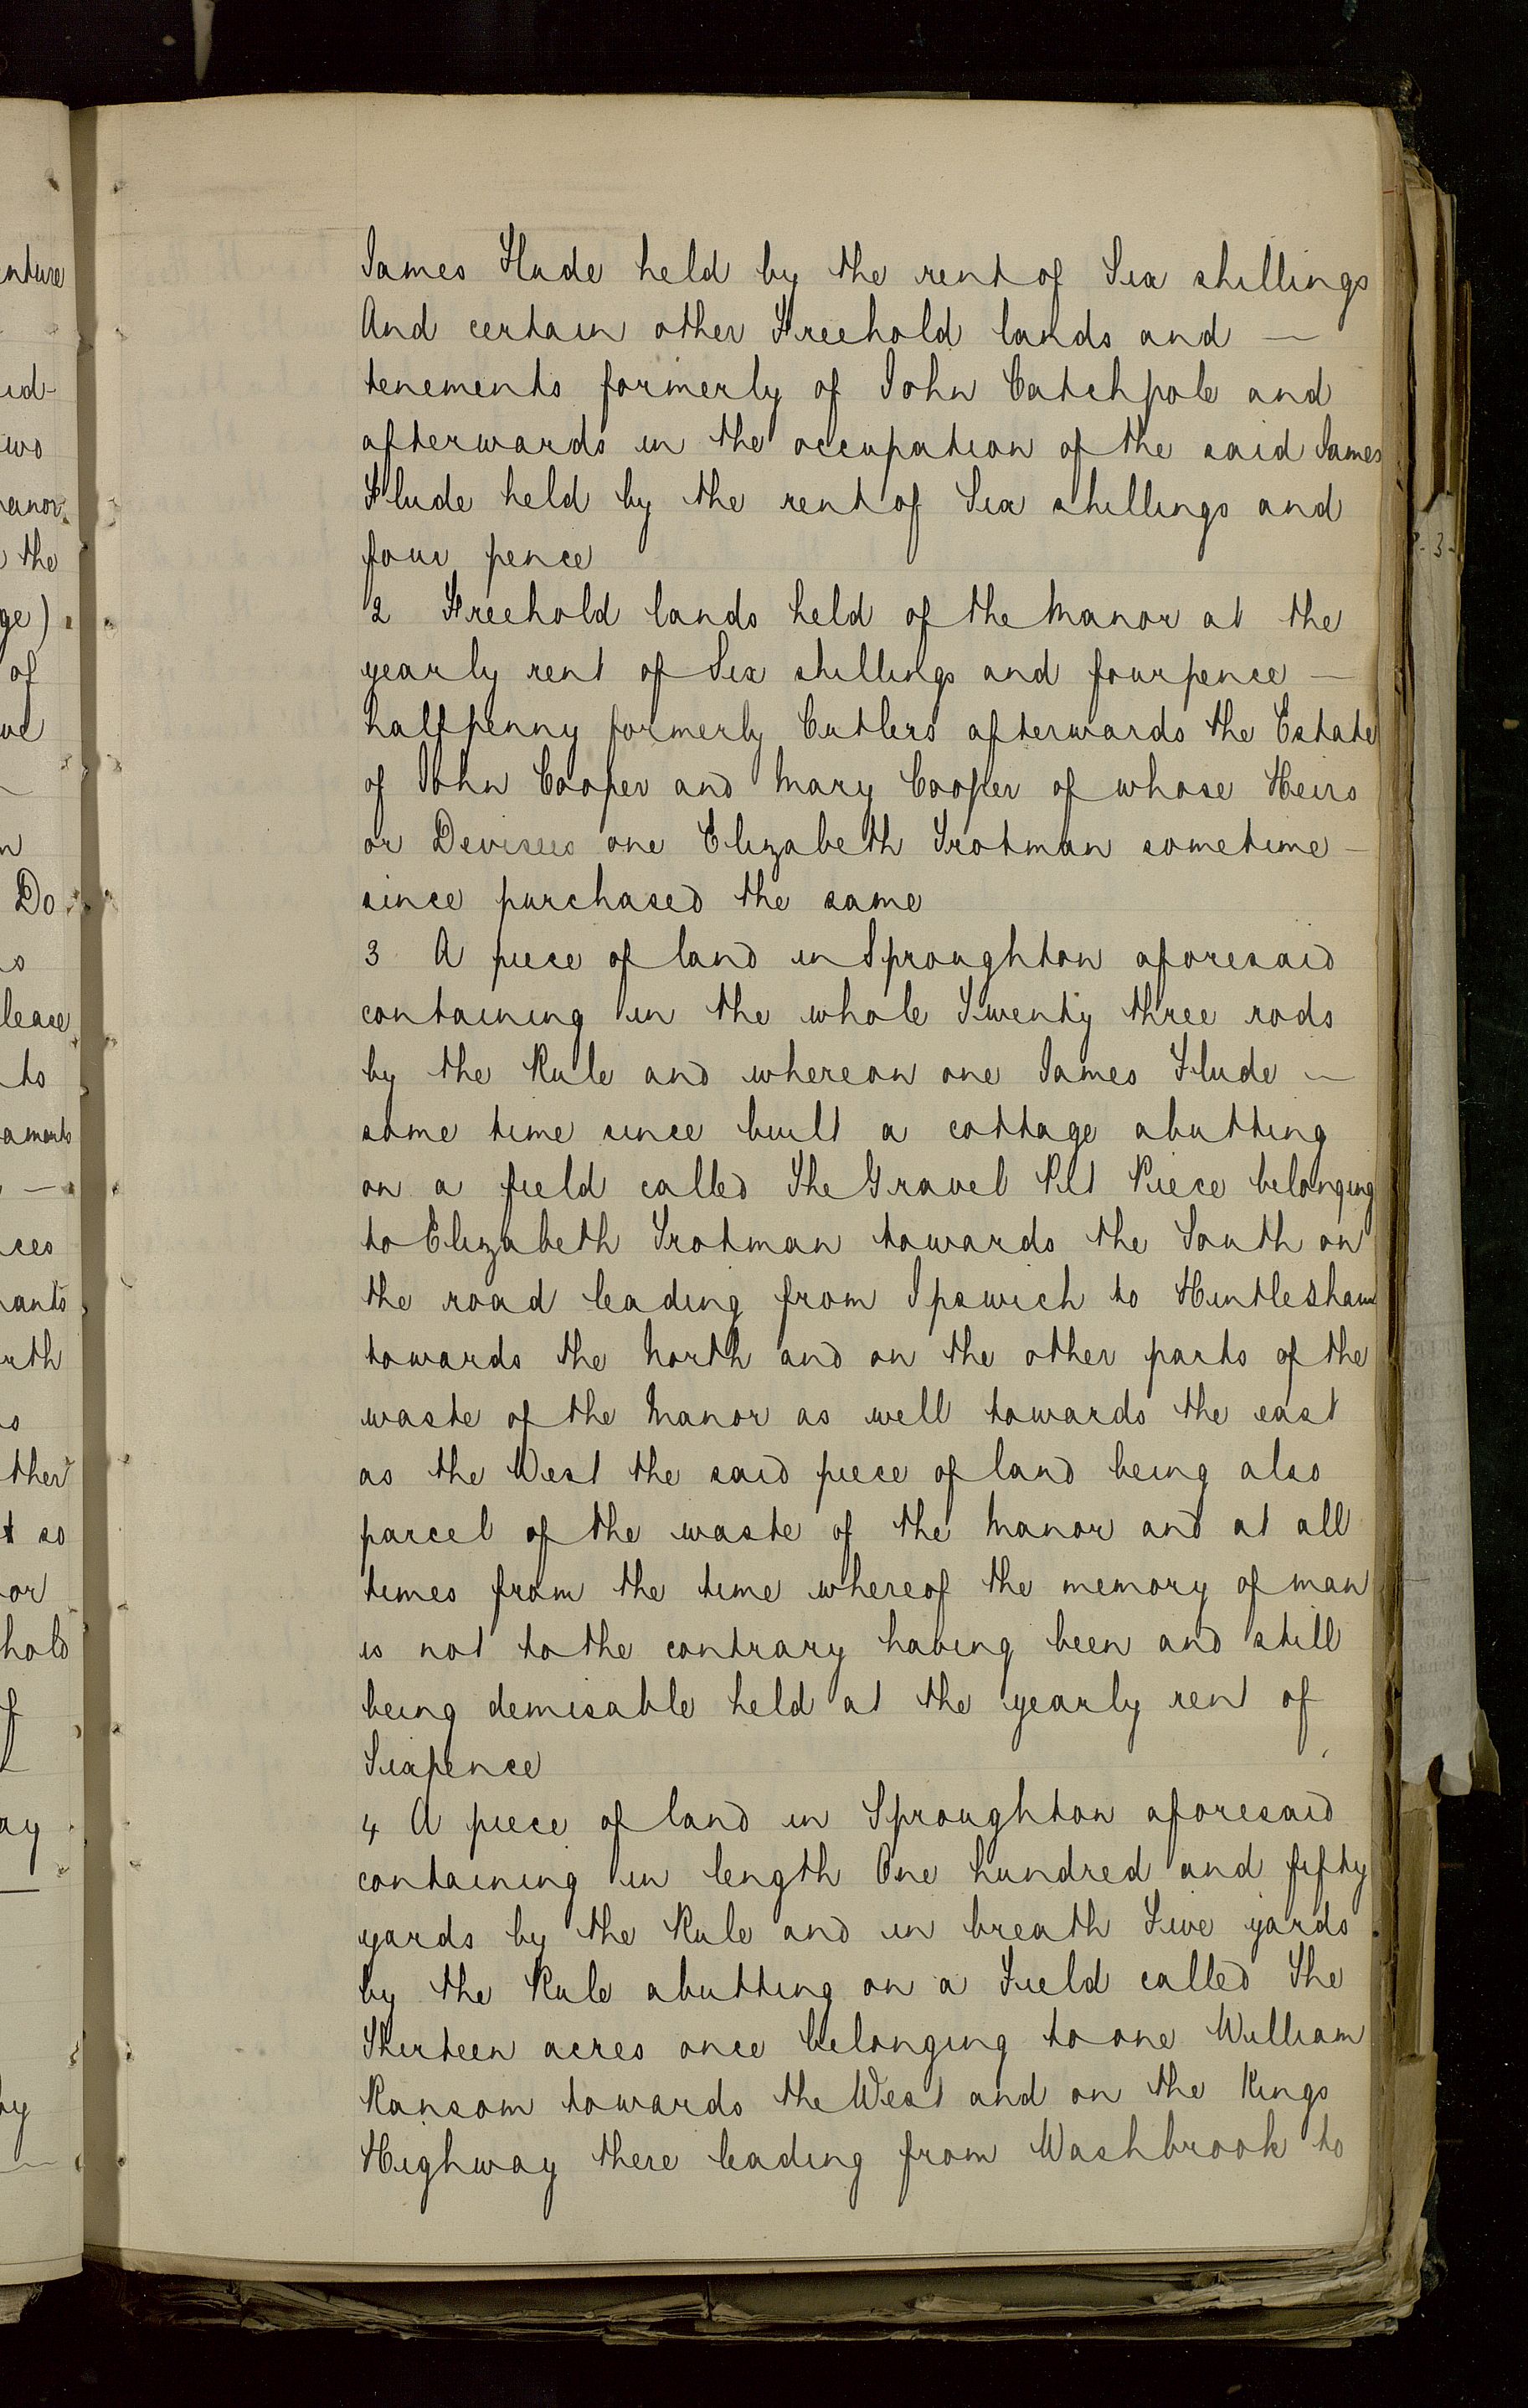 James Flude held by the rent of Six shillings
And certain other Freehold lands and —
tenements formerly of John Catchpole and
afterwards in the occupation of the said James
Flude held by the rent of Six shillings and
four pence
2 Freehold lands held of the Manor at the
yearly rent of Six shillings and fourpence —
halfpenny formerly Cutlers afterwards the Estate
of John Cooper and Mary Cooper of whose Heirs
or Devisees one Elizabeth Trotman sometime —
since purchased the same
3 A piece of land in Sproughton aforesaid
containing in the whole Twenty three rods
by the Rule and whereon one James Flude —
some time since built a cottage abutting
on a field called The Gravel Pit Piece belonging
to Elizabeth Trotman towards the South on
the road leading from Ipswich to Hintlesham
towards the North and on the other parts of the
waste of the Manor as well towards the east
as the West the said piece of land being also
parcel of the waste of the Manor and at all
times from the time whereof the memory of man
is not to the contrary having been and still
being demisable held at the yearly rent of
Sixpence
4 A piece of land in Sproughton aforesaid
containing in length One hundred and fifty
yards by the Rule and in breath Five yards
by the Rule abutting on a Field called The
Thirteen acres once belonging to one William
Ransom towards the West and on the Kings
Highway there leading from Washbrook to